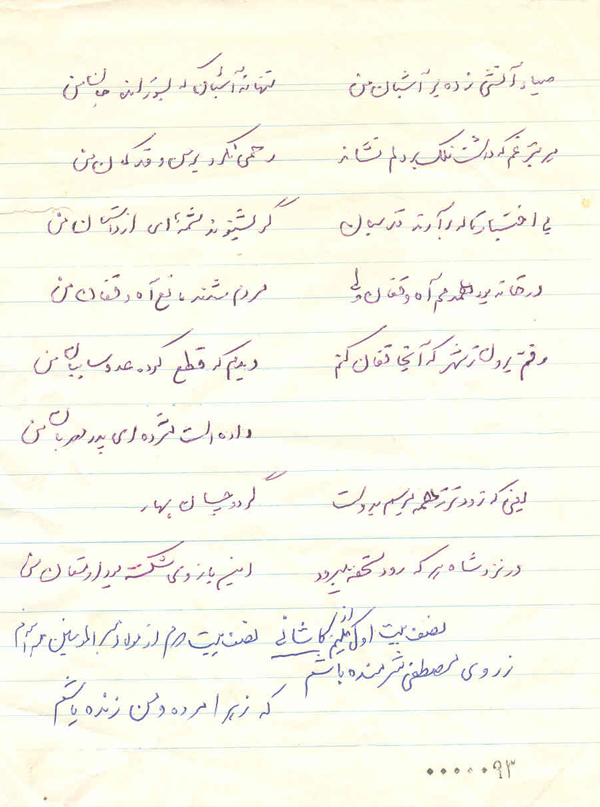 صیاد آتشی زده بر آشیان من تنها نه آشیان که بسوزانده جان من
هر تیر غم که داشت فلک بر دلم نشاند رحمی نکرد بر من و قد کمان من
بی اختیار ناله برآرند قدسیان گر بشنوند شمه‌ای از داستان من
در خانه بود همدمم آه و فغان ولی مردم شدند مانع آه و فغان من
رفتم برون ز شهر که آنجا فغان کنم دیدم که قطع کرده عدو سایبان من
داده است مژده‌ای پدر مهربان من
یعنی که زودتر ز همه میرسم بدوست گردد چسان بهار
در نزد شاه هر که رود تحفه میبرد این بازوی شکسته بود ارمغان من
نصف بیت اول از کلیم کاشانی نصف بیت دوم از
ز روی مصطفی شرمنده باشم
که زهرا مرده و من زنده باشم
۰۰۰۰۰۹۳